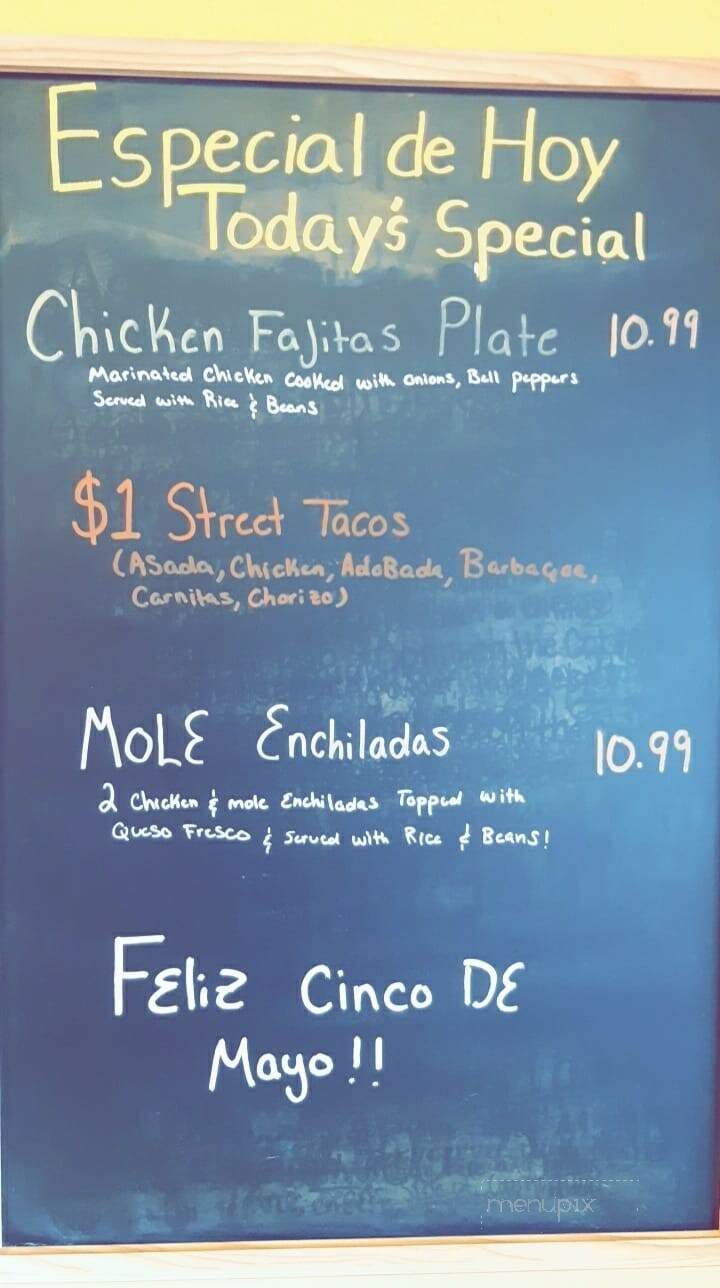 Especial de Hoy
Today's Special
Chicken Fajitas Plate 10.99
Marinated Chicken cooked with onions, Bell peppers
Served with Rice & Beans
$1 Street Tacos
(Asada, Chicken, AdoBada, Barbacoa,
Carnitas, Chorizo)
MOLE Enchiladas 10.99
2 Chicken & mole Enchiladas Topped with
Queso Fresco & Served with Rice & Beans!
Feliz Cinco DE
Mayo!!
menupix